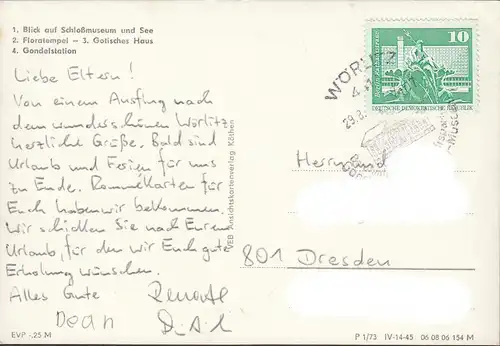 1. Blick auf Schloßmuseum und See
2. Floratempel – 3. Gotisches Haus
4. Gondelstation
Liebe Eltern!
Von einem Ausflug nach
dem wunderschönen Wörlitz
herzliche Grüße. Bald sind
Urlaub und Ferien für uns
zu Ende. Rommékarten für
Euch haben wir bekommen.
Wir schicken Sie nach Eurem
Urlaub, für den wir Euch gute
Erholung wünschen.
Alles Gute Renate
Dean
EVP -,25 M
VEB Ansichtskartenverlag Köthen
10
DEUTSCHE DEMOKRATISCHE REPUBLIK
WÖRLITZ
29.8.
Herrn und
801 Dresden
P 1/73 IV-14-45 06 08 06 154 M